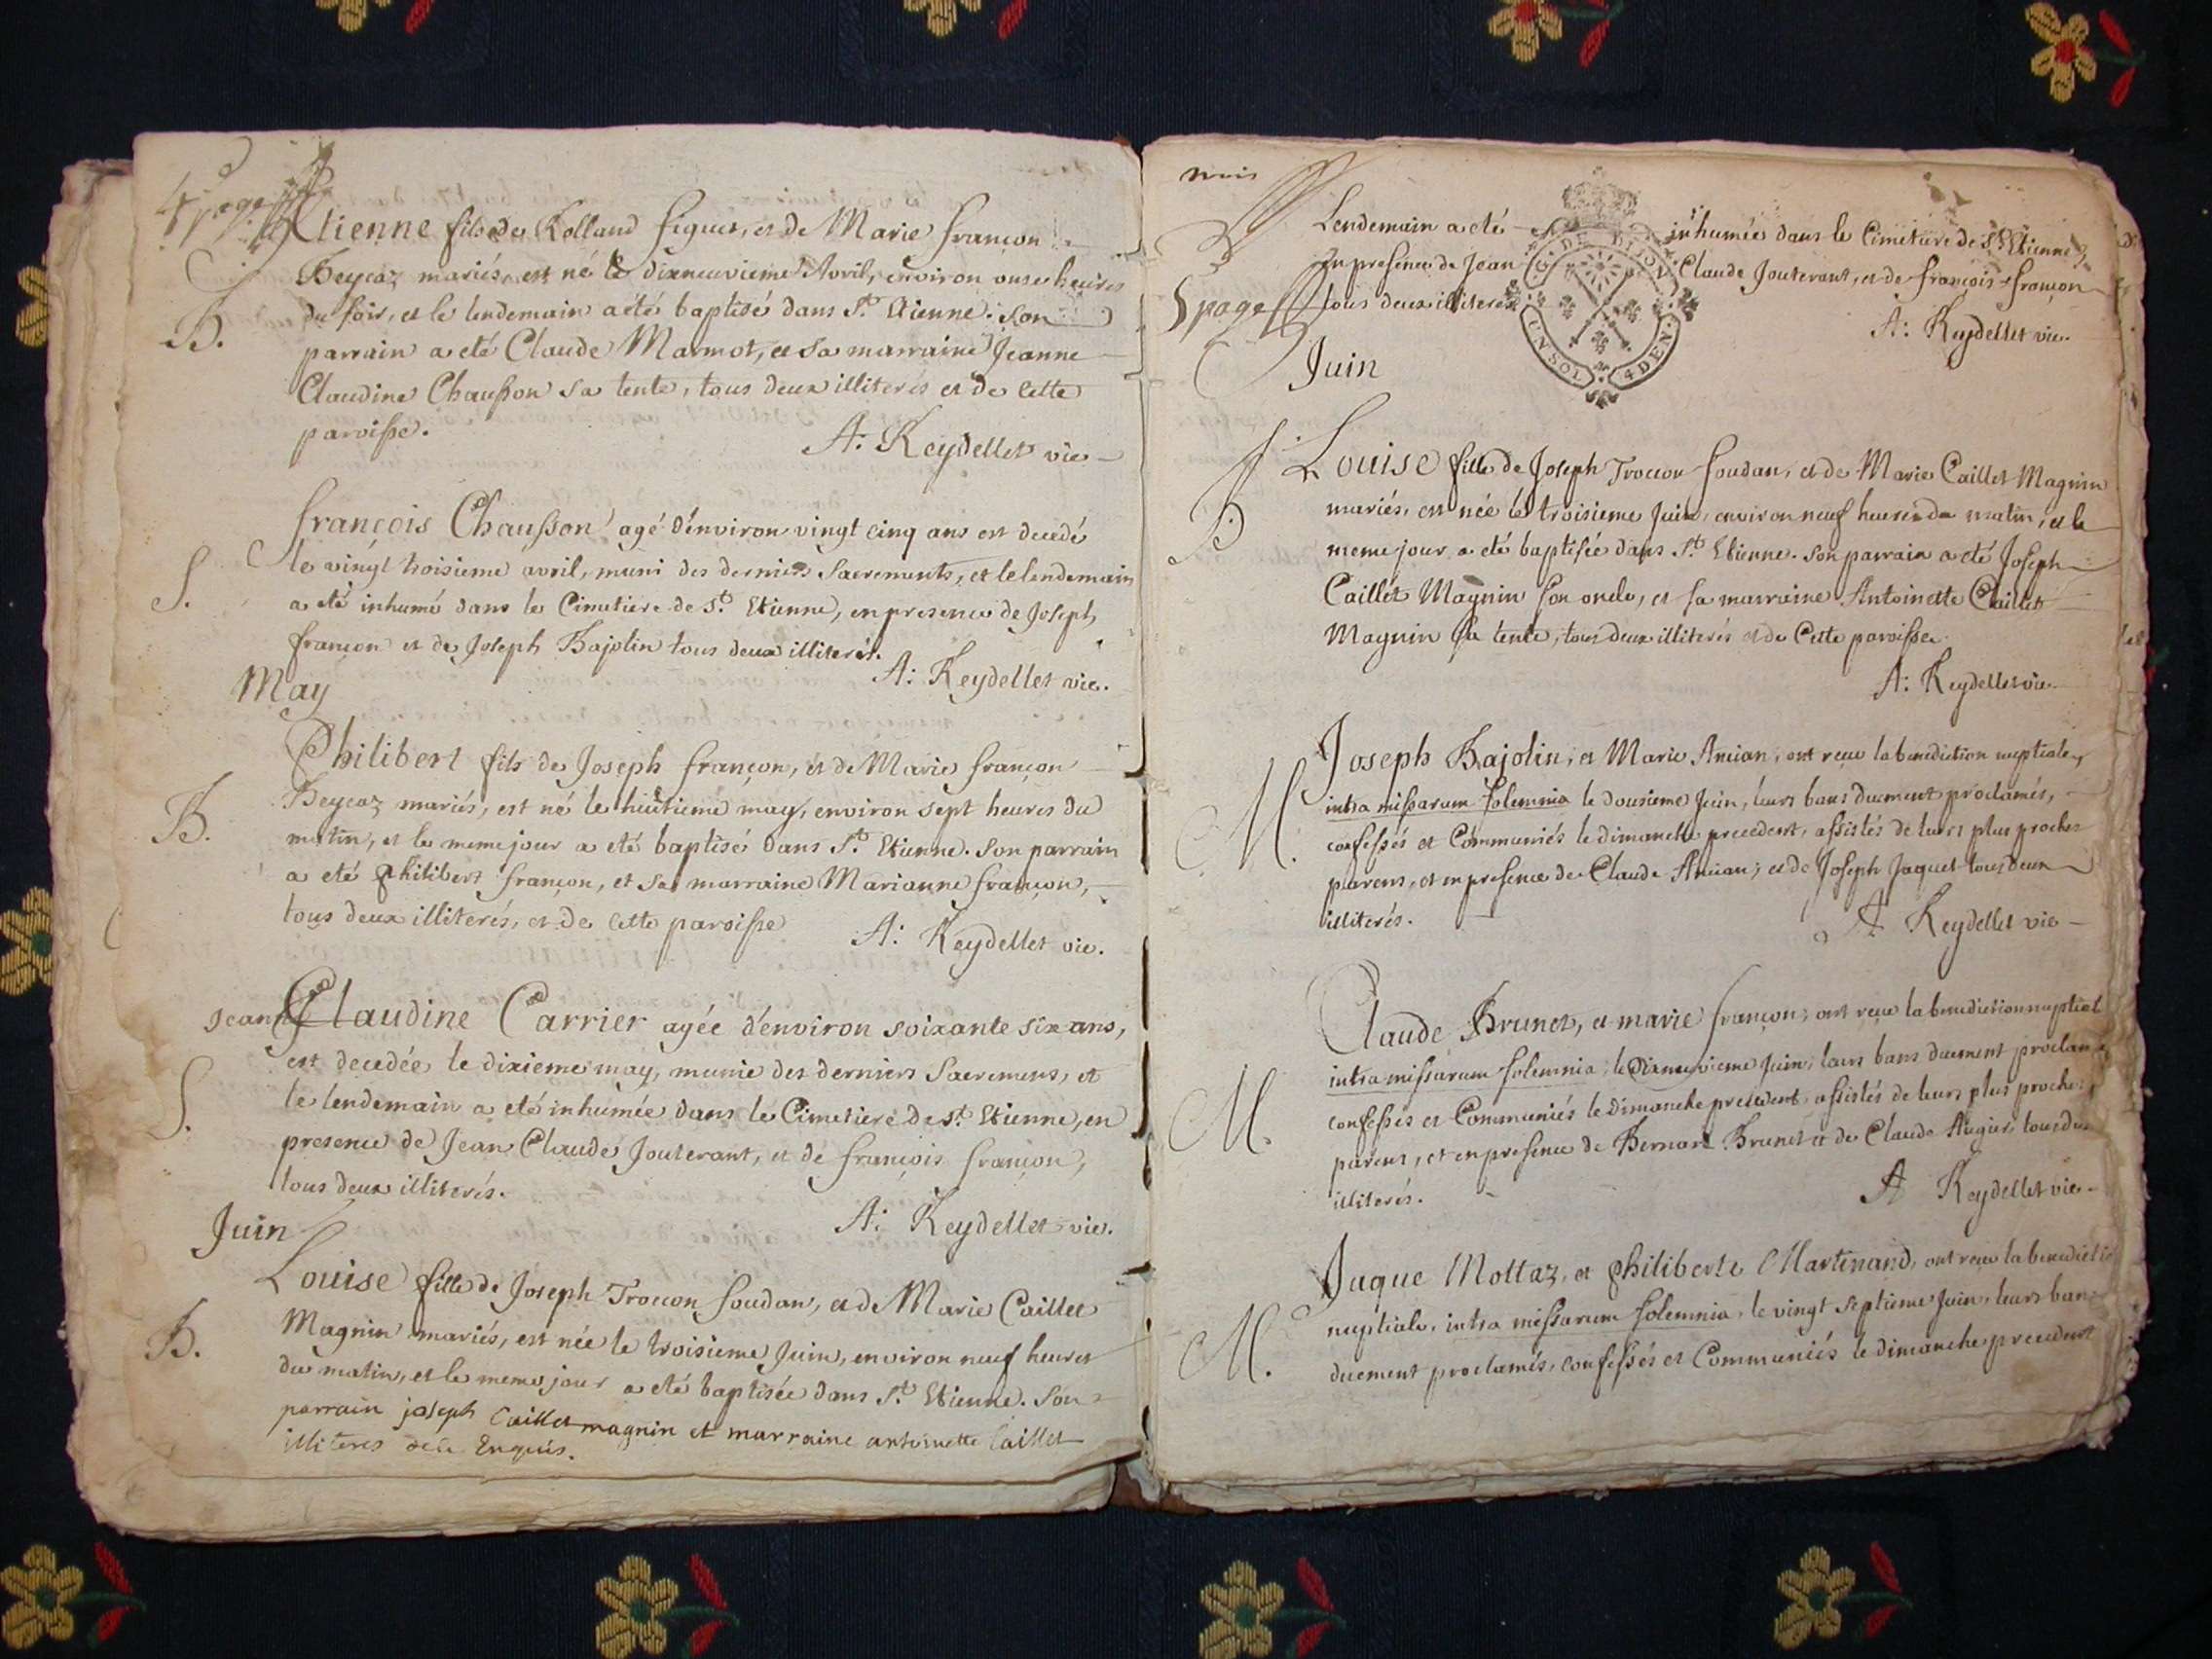 4 page
Etienne fils de Rolland figuet, et de Marie françon
Beycaz mariés, est né le dixneuvieme Avril, environ onse heures
du soir, et le lendemain a eté baptisé dans St. Etienne. Son
B.
parrain a eté Claude Marmot, et sa marraine Jeanne
Claudine Chausson sa tente, tous deux illiterés et de cette
paroisse.
A: Reydellet vic
françois Chausson agé d'environ vingt cinq ans est decedé
le vingt troisieme avril, muni des derniers Sacrements, et le lendemain
S.
a eté inhumé dans le Cimetiere de St. Etienne, en presence de Joseph
françon et de Joseph Bajolin tous deux illiterés.
A: Reydellet vic.
May
Philibert fils de Joseph françon, et de Marie françon
Beycaz mariés, est né le huitieme may, environ sept heures du
B.
matin, et le meme jour a eté baptisé dans St. Etienne. Son parrain
a eté Philibert françon, et sa marraine Marianne françon,
tous deux illiterés, et de cette paroisse
A: Reydellet vic.
Jeanne Claudine Carrier agée d'environ soixante six ans,
est decedée le dixieme may, munie des derniers Sacremens, et
le lendemain a eté inhumée dans le Cimetiere de St. Etienne, en
S.
presence de Jean Claude Jouterant, et de françois françon,
tous deux illiterés.
A: Reydellet vic.
Juin
Louise fille de Joseph Troccon soudan, et de Marie Caillet
Magnin mariés, est née le troisieme Juin, environ neuf heures
B.
du matin, et le meme jour a eté baptisée dans St. Etienne. Son
parrain joseph Caillet magnin et marraine antoinette Caillet
illiteres de ce Enquis.
Lendemain a eté inhumée dans le Cimetiere de St. Etienne,
En presence de Jean Claude Jouterant, et de françois françon
5 page
tous deux illiterés
G. DE DIJON
UN SOL 4 DEN.
A: Reydellet vic.
Juin
Louise fille de Joseph Troccon soudan, et de Marie Caillet Magnin
mariés, est née le troisieme Juin, environ neuf heures du matin, et le
B
meme jour a eté baptisée dans St. Etienne. Son parrain a eté Joseph
Caillet Magnin son oncle, et sa marraine Antoinette Caillet
Magnin sa tente, tous deux illiterés et de Cette paroisse.
A: Reydellet vic
Joseph Bajolin, et Marie Ancian, ont reçu la benediction nuptiale,
intra missarum solemnia le dousieme Juin, leurs bans duement proclamés,
M.
confessés et Communiés le dimanche precedent, assistés de leurs plus proches
parens, et en presence de Claude Ancian, et de Joseph Jaquet tous deux
illiterés.
A: Reydellet vic
Claude Brunet, et marie françon, ont reçu la benediction nuptial
intra missarum solemnia, le Dixneuvieme Juin, leurs bans duement proclamés
M.
confessés et Communiés le dimanche precedent assistés de leurs plus proches
parens, et en presence de Bernard Brunet et de Claude Augier, tous deux
illiterés.
A Reydellet vic.
Jaque Mottaz, et Philiberte Martinand, ont reçu la benedictio
nuptiale, intra missarum solemnia, le vingt septieme Juin, leurs bans
M.
duement proclamés, confessés et Communiés le dimanche precedent